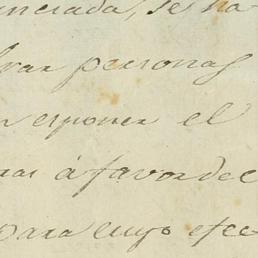 unciada, se ha
rar personas
esponer el
ras á favor del
para cuyo efec